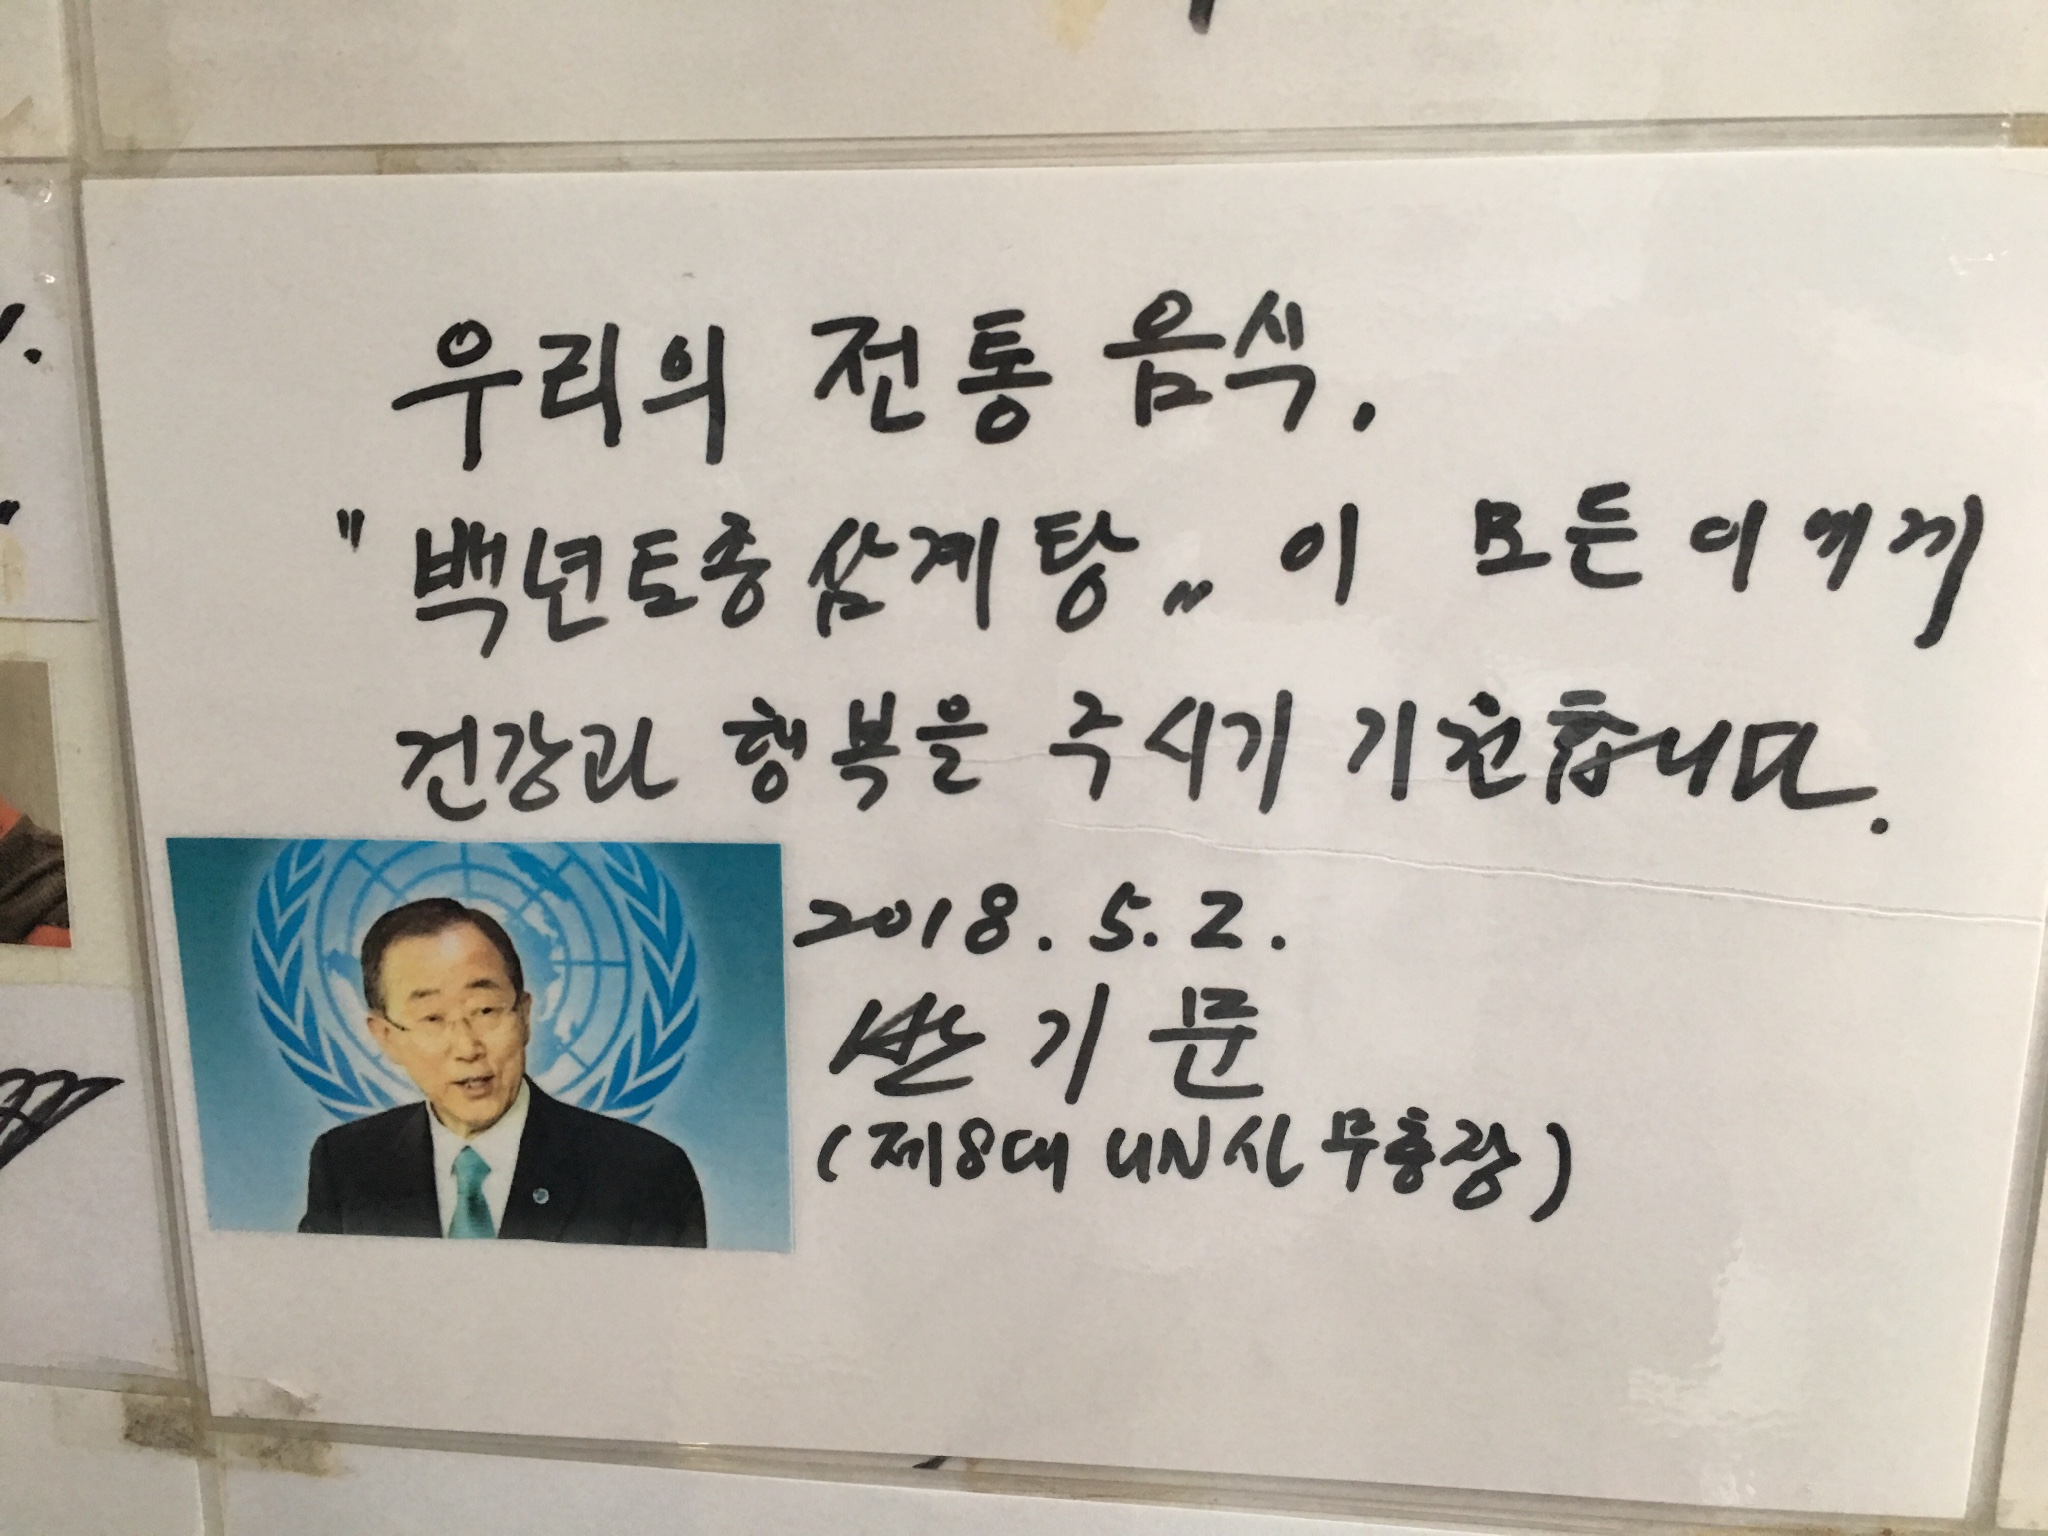 우리의 전통 음식,
"백년토종삼계탕" 이 모든이에게
건강과 행복을 주시기 기원합니다.
2018. 5. 2.
반기문
(제8대 UN사무총장)